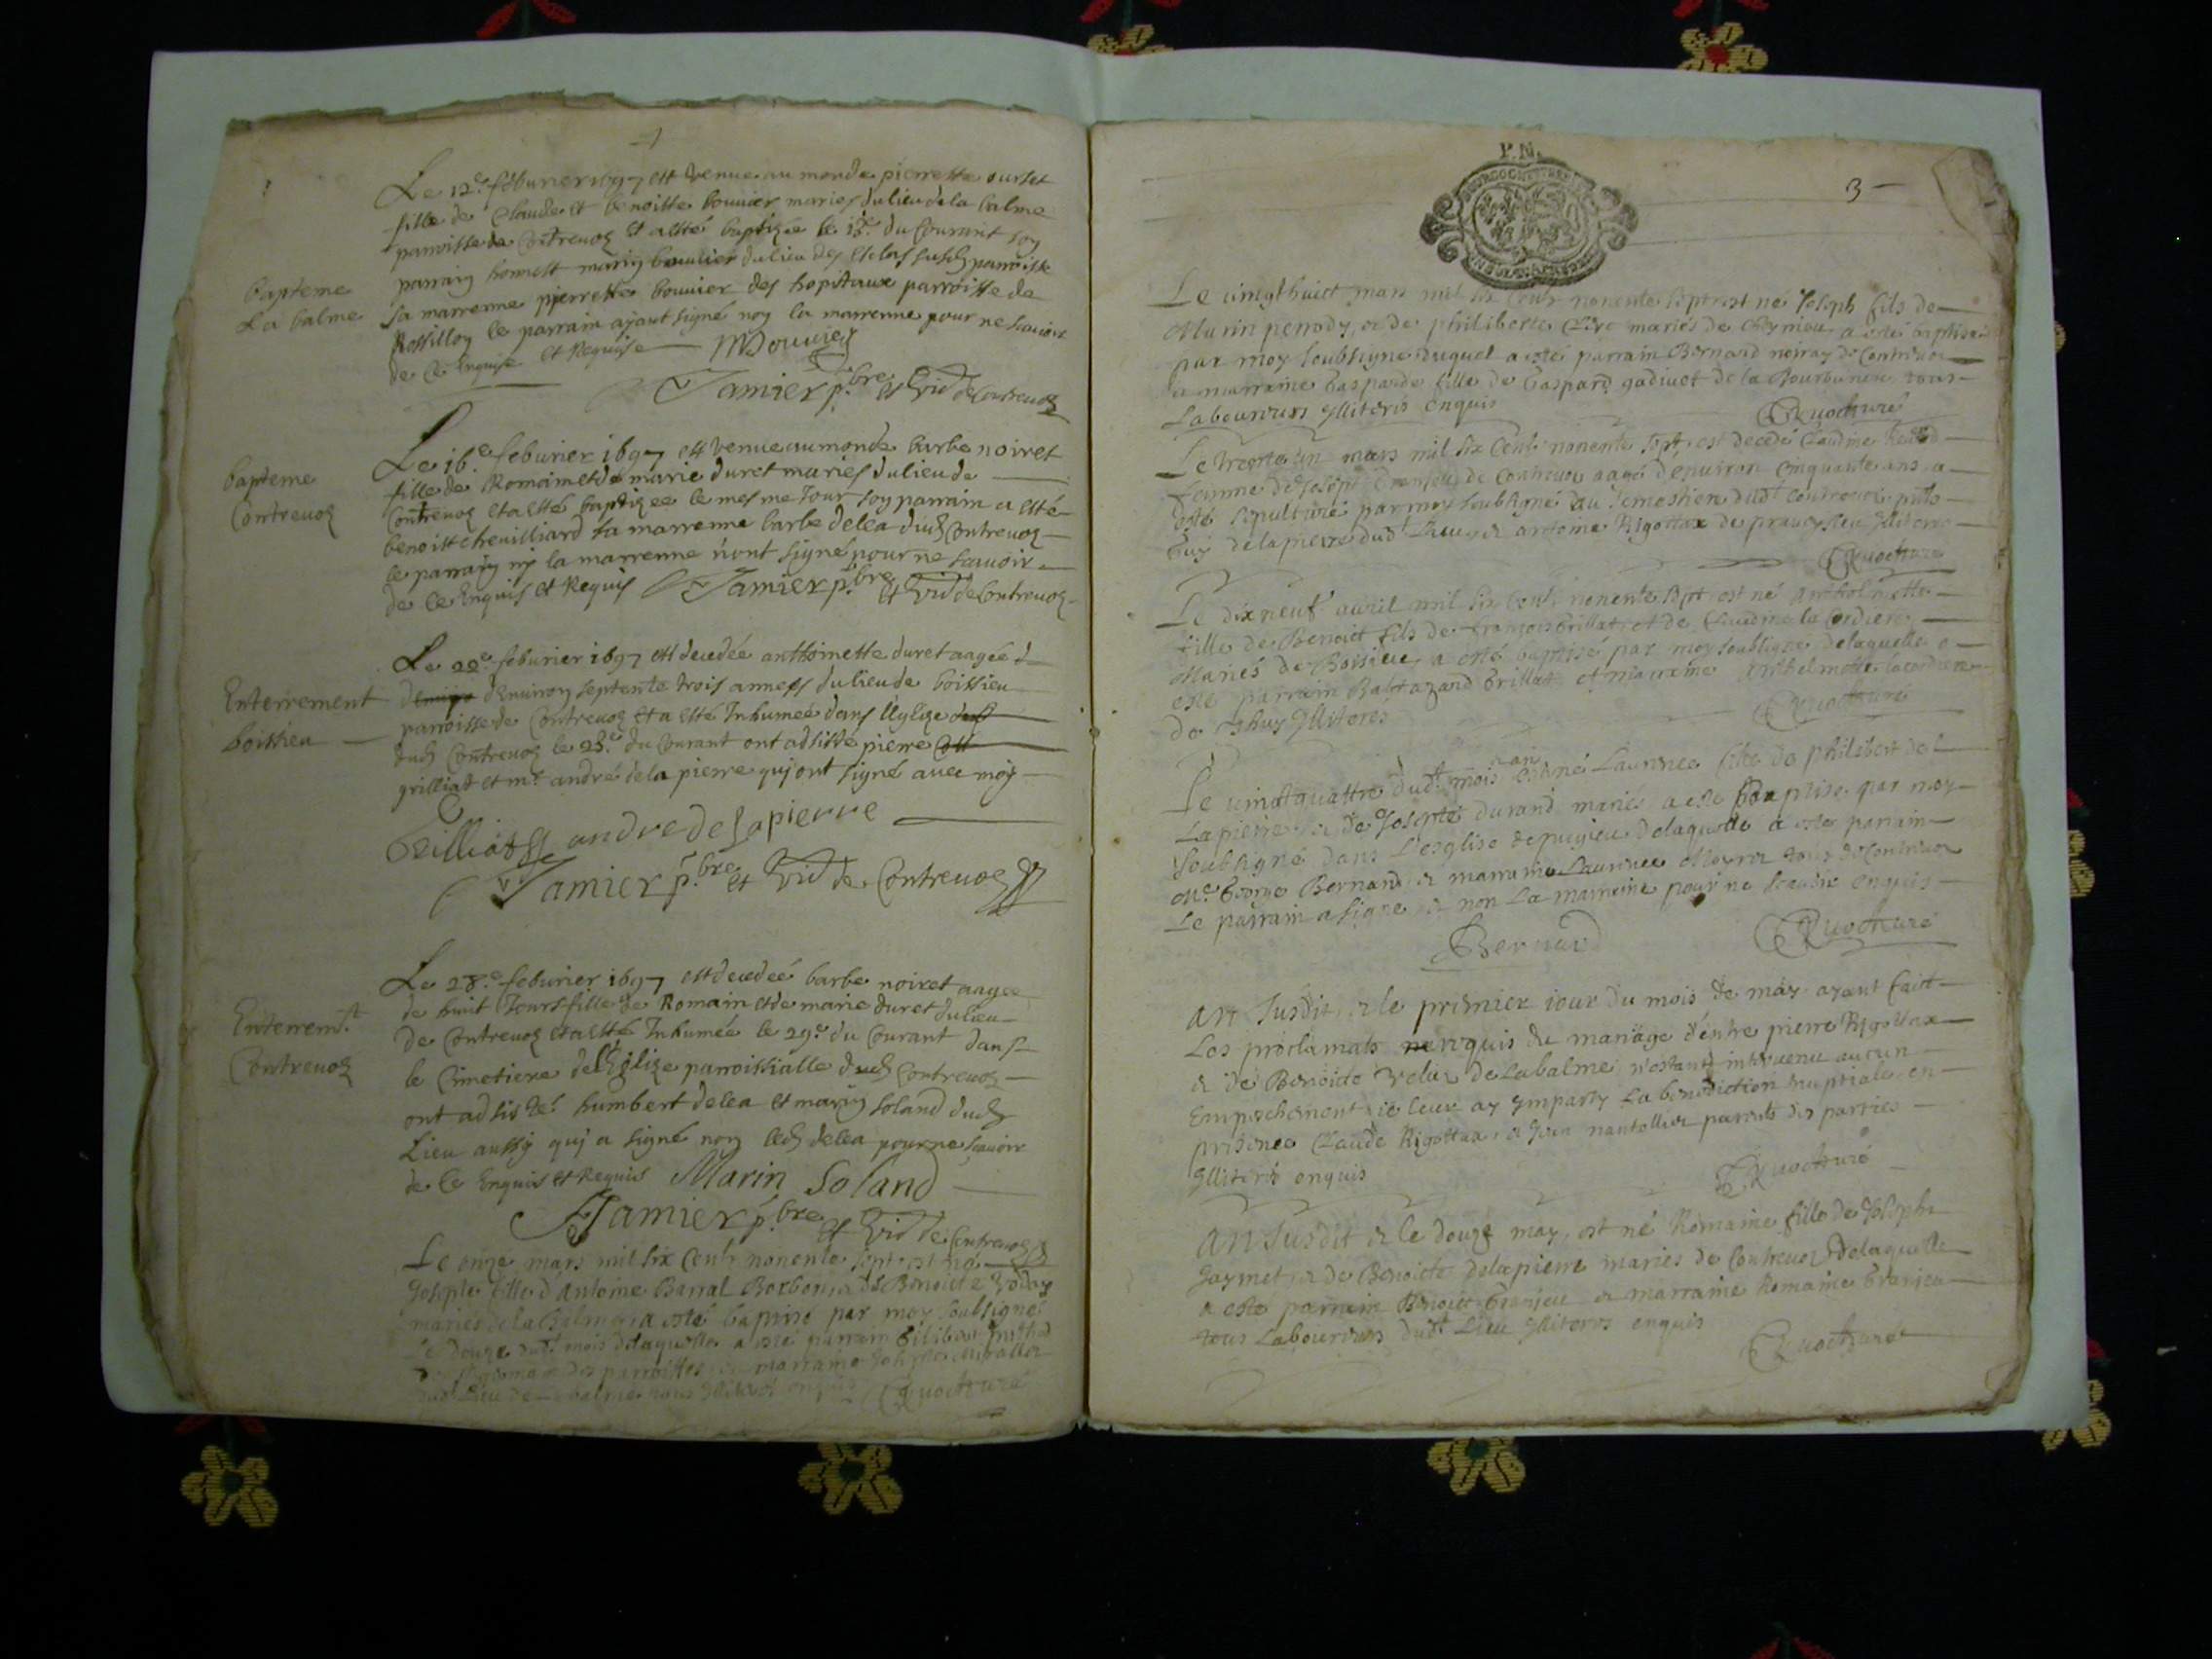 Le 12e feburier 1697 est venue au monde pierrette ourset
fille de Claude et benoitte bouvier mariés du lieu de la balme
parroisse de Contrevoz et a esté baptizée le 13e du Courant son
parrain honnest marin bouvier du lieu des susd parroisse
bapteme
La balme
sa marrenne pierrette bouvier des hopitaux parroisse de
Rossillon le parrain ajant signé non la marrenne pour ne scavoir
de ce Enquise et Requise MBouvier
Jamier pbre et vic de Contrevoz
bapteme
Contrevoz
Le 16e feburier 1697 est venue au monde barbe noiret
fille de Romain et de marie duret mariés du lieu de
Contrevoz et a esté baptizee le mesme Jour son parrain a esté
benoist chevilliard sa marrenne barbe delea dud Contrevoz
le parrain ny la marrenne n'ont signé pour ne scavoir
de ce Enquis et Requis Jamier pbre et vic de Contrevoz
Enterrement
boissieu
Le 22e feburier 1697 est decedée anthoinette duret aagée d
d'environ septente trois années du lieu de boissieu
parroisse de Contrevoz et a esté Inhumée dans l'Eglize
dud Contrevoz le 23e du Courant ont adsisté pierre
grilliat et me andré de la pierre qui ont signé avec moy
Grilliat andre de Lapierre
Jamier pbre et vic de Contrevoz
Enterremt
Contrevoz
Le 28e feburier 1697 est decedeé barbe noiret aagee
de huit Jours fille de Romain et de marie duret du lieu
de Contrevoz et a esté Inhumée le 29e du Courant dans
le Cimetiere de l'Eglize parroissialle dud Contrevoz
ont adsisté humbert delea et marin soland dud
Lieu aussy qui a signé non led delea pour ne scavoir
de ce Enquis et Requis Marin Soland
Jamier pbre et vic de Contrevoz
Le onze mars mil six Cents nonente sept est né
Josepte fille d'Antoine Barral Borbon et de Benoicte
mariés de la Balme a esté baptisé par moy soubsigné
Le douze dudt mois delaquelle a esté parrain
parroisses marraine
dudt Lieu de balme tous Illiterés enquis
P.N.
3
Le vingthuict mars mil six Cents nonente sept est né Joseph fils de
Marin penody et de philiberte mariés de a esté baptisé
par moy soubsigné duquel a esté parrain Bernard noiray de Contrevoz
et marraine Gasparde fille de Gaspard gadivet de la tous
Laboureurs Illiterés enquis
Le trente un mars mil six Cents nonente sept est decedé Claudine
femme de Joseph de Contrevoz aagé d'environ Cinquante ans a
esté sepulturé par moy soubsigné au semestiere dudt Contrevoz
Guy delapierre dudt Lieu et antoine Rigottax de Illiterés
Le dix neuf avril mil six Cents nonente sept est né Anthelmette
fille de Benoict fils de francois Grillat et de Claudine la Cordiere
Mariés de Boisieu a esté baptisé par moy soubsigné delaquelle a
esté parrain Baltazard Grillat et marraine Anthelmette la cordiere
de Illiterés
Le vingtquattre dudt mois est né Laurence fille de philibert de
Lapierre et de Josepte durand mariés a esté Baptisé par moy
soubsigné dans L'esglise de pugieu delaquelle a esté parrain
Me George Bernard et marraine Laurence tous de Contrevoz
Le parrain a signé et non La marraine pour ne scavoir enquis
Bernard
An susdit et le premier iour du mois de may ayant faict
Les proclamats requis du mariage d'entre pierre Rigottax
et de Benoicte de Labalme n'estant intervenu aucun
Empeschement ie leur ay Imparty La benediction nuptiale en
presence Claude Rigottax et Jean nantollier parents des parties
Illiterés enquis
An susdit et le douze may est né Romaine fille de Joseph
Jaymet et de Benoicte delapierre mariés de Contrevoz delaquelle
a esté parrain Benoict et marraine Romaine
tous Laboureurs dudt Lieu Illiterés enquis